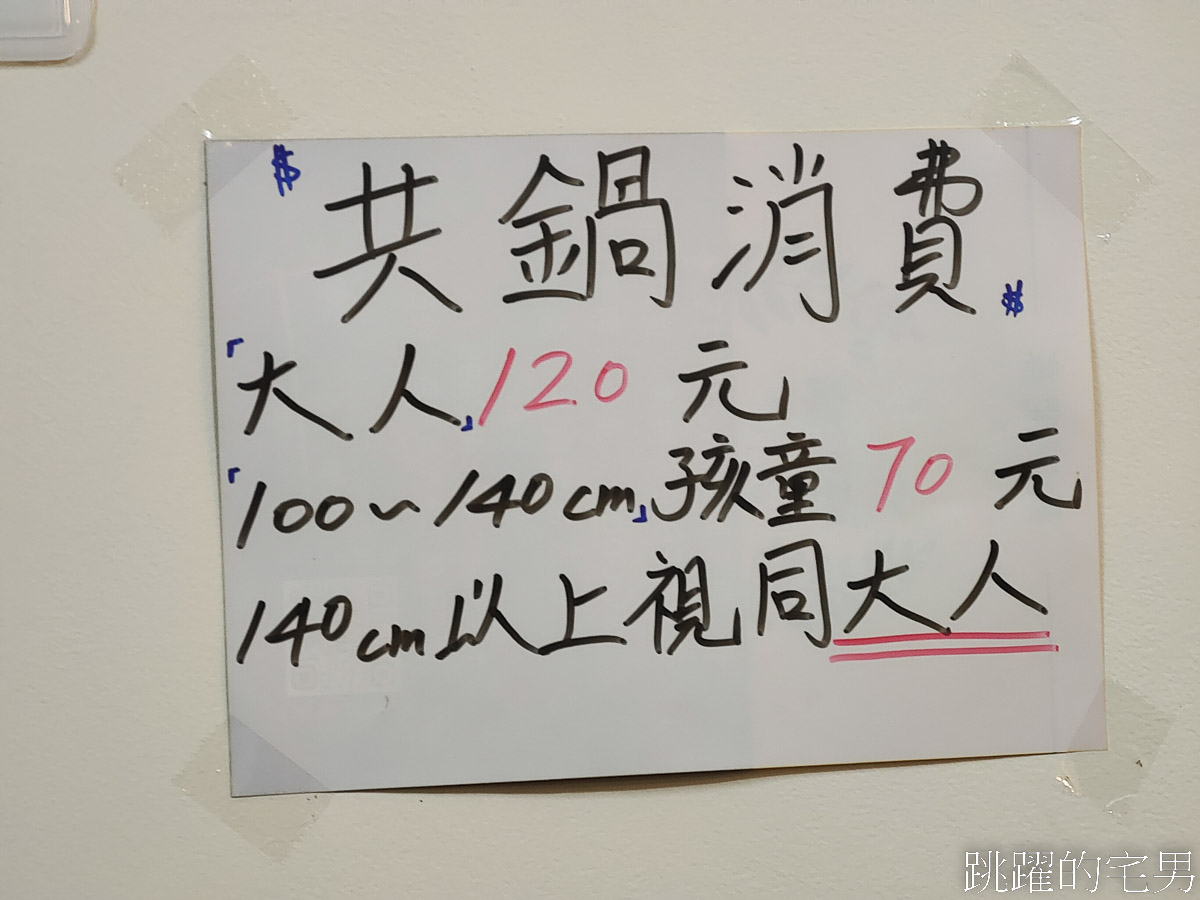 $ 共鍋消費 $
「大人」120元
「100~140cm」孩童 70元
140cm以上視同大人
跳躍的宅男